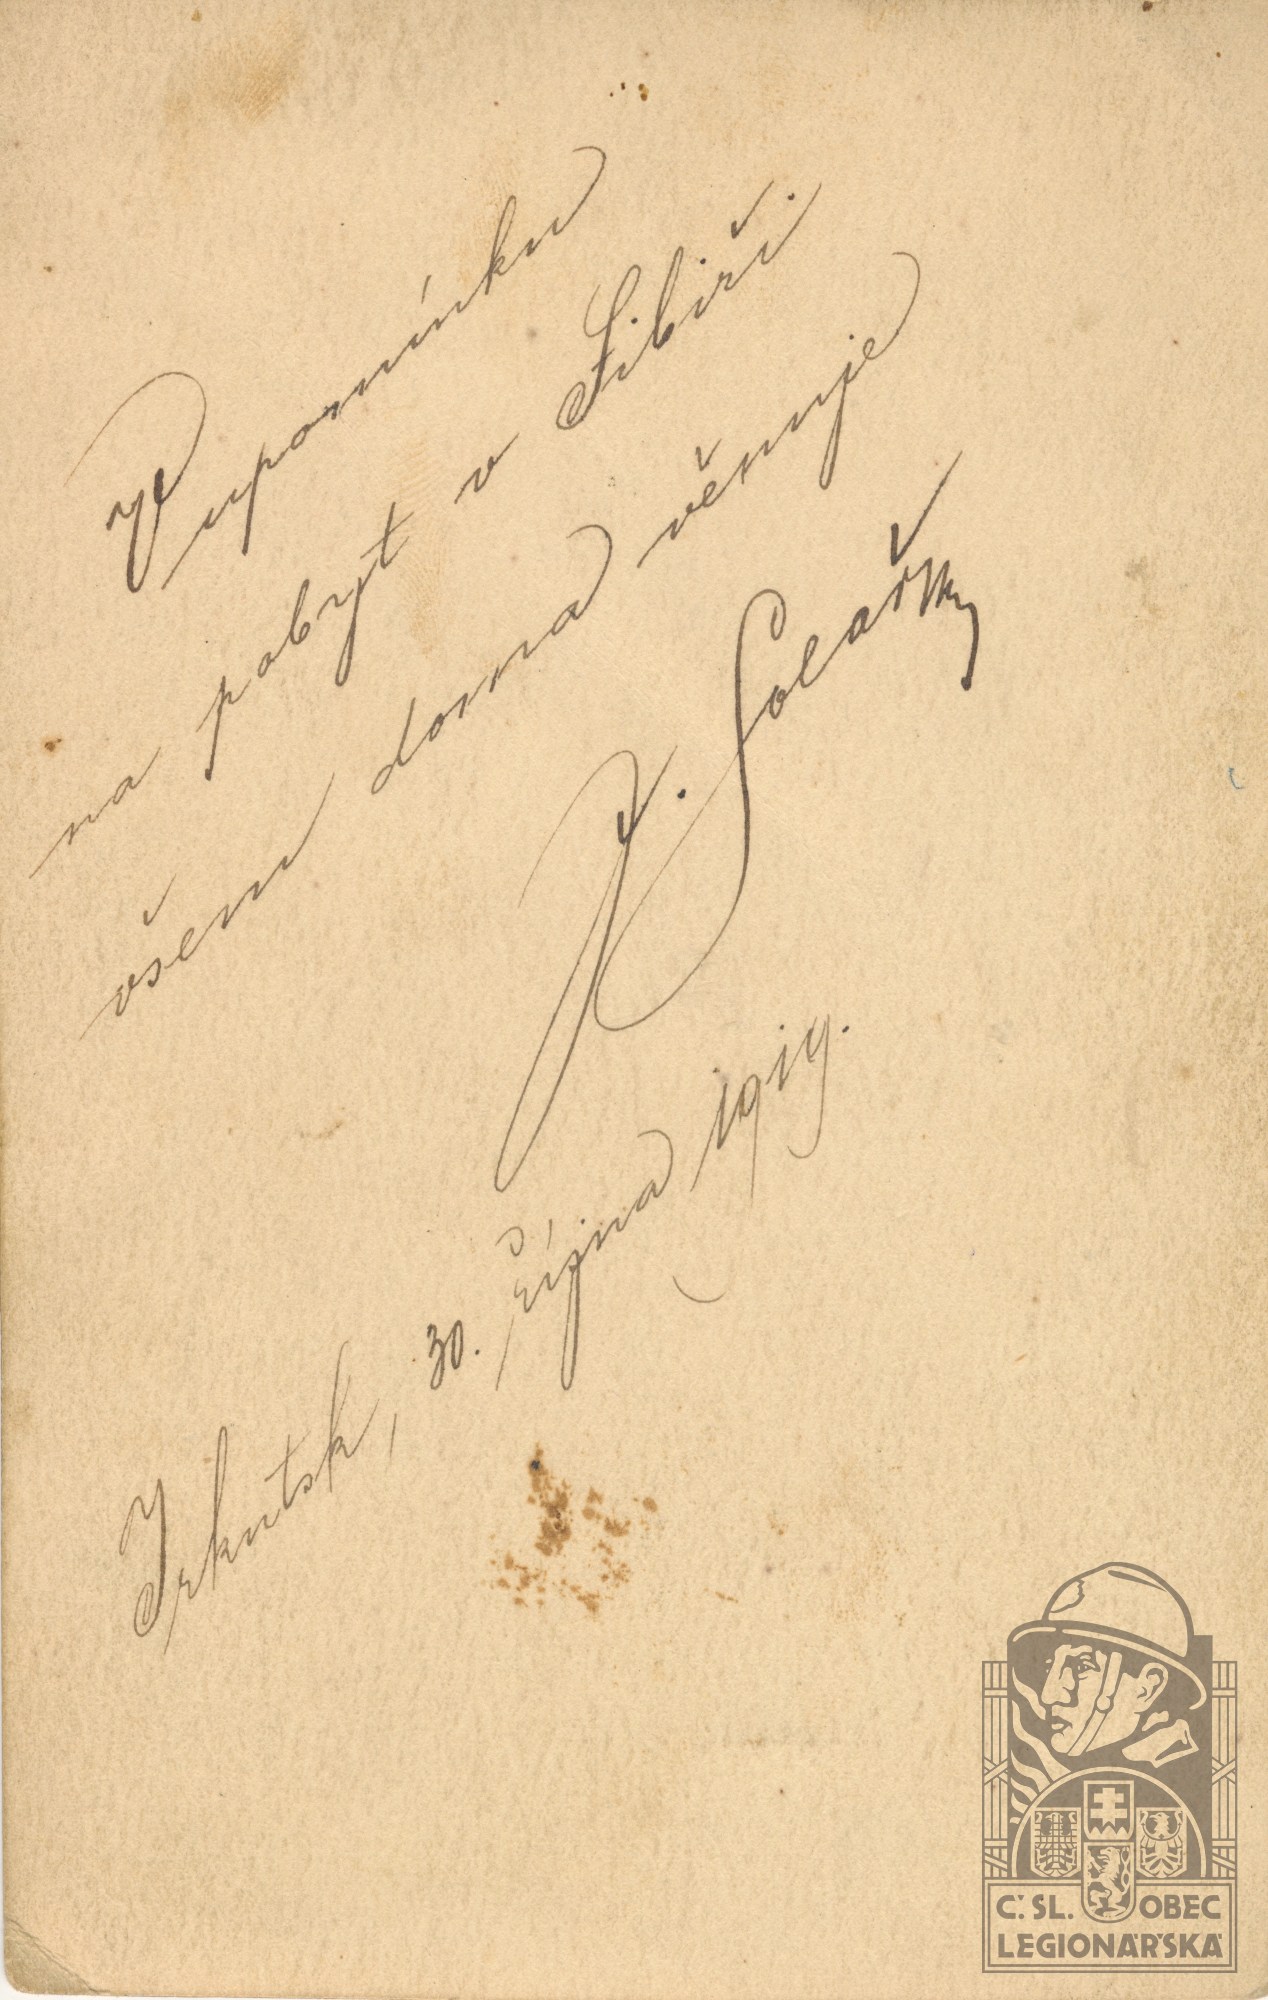 V upomínku
na pobyt v Sibiři.
všem doma věnuje
Solařík
Irkutsk, 30. října 1919.
Č. SL. OBEC
LEGIONÁŘSKÁ